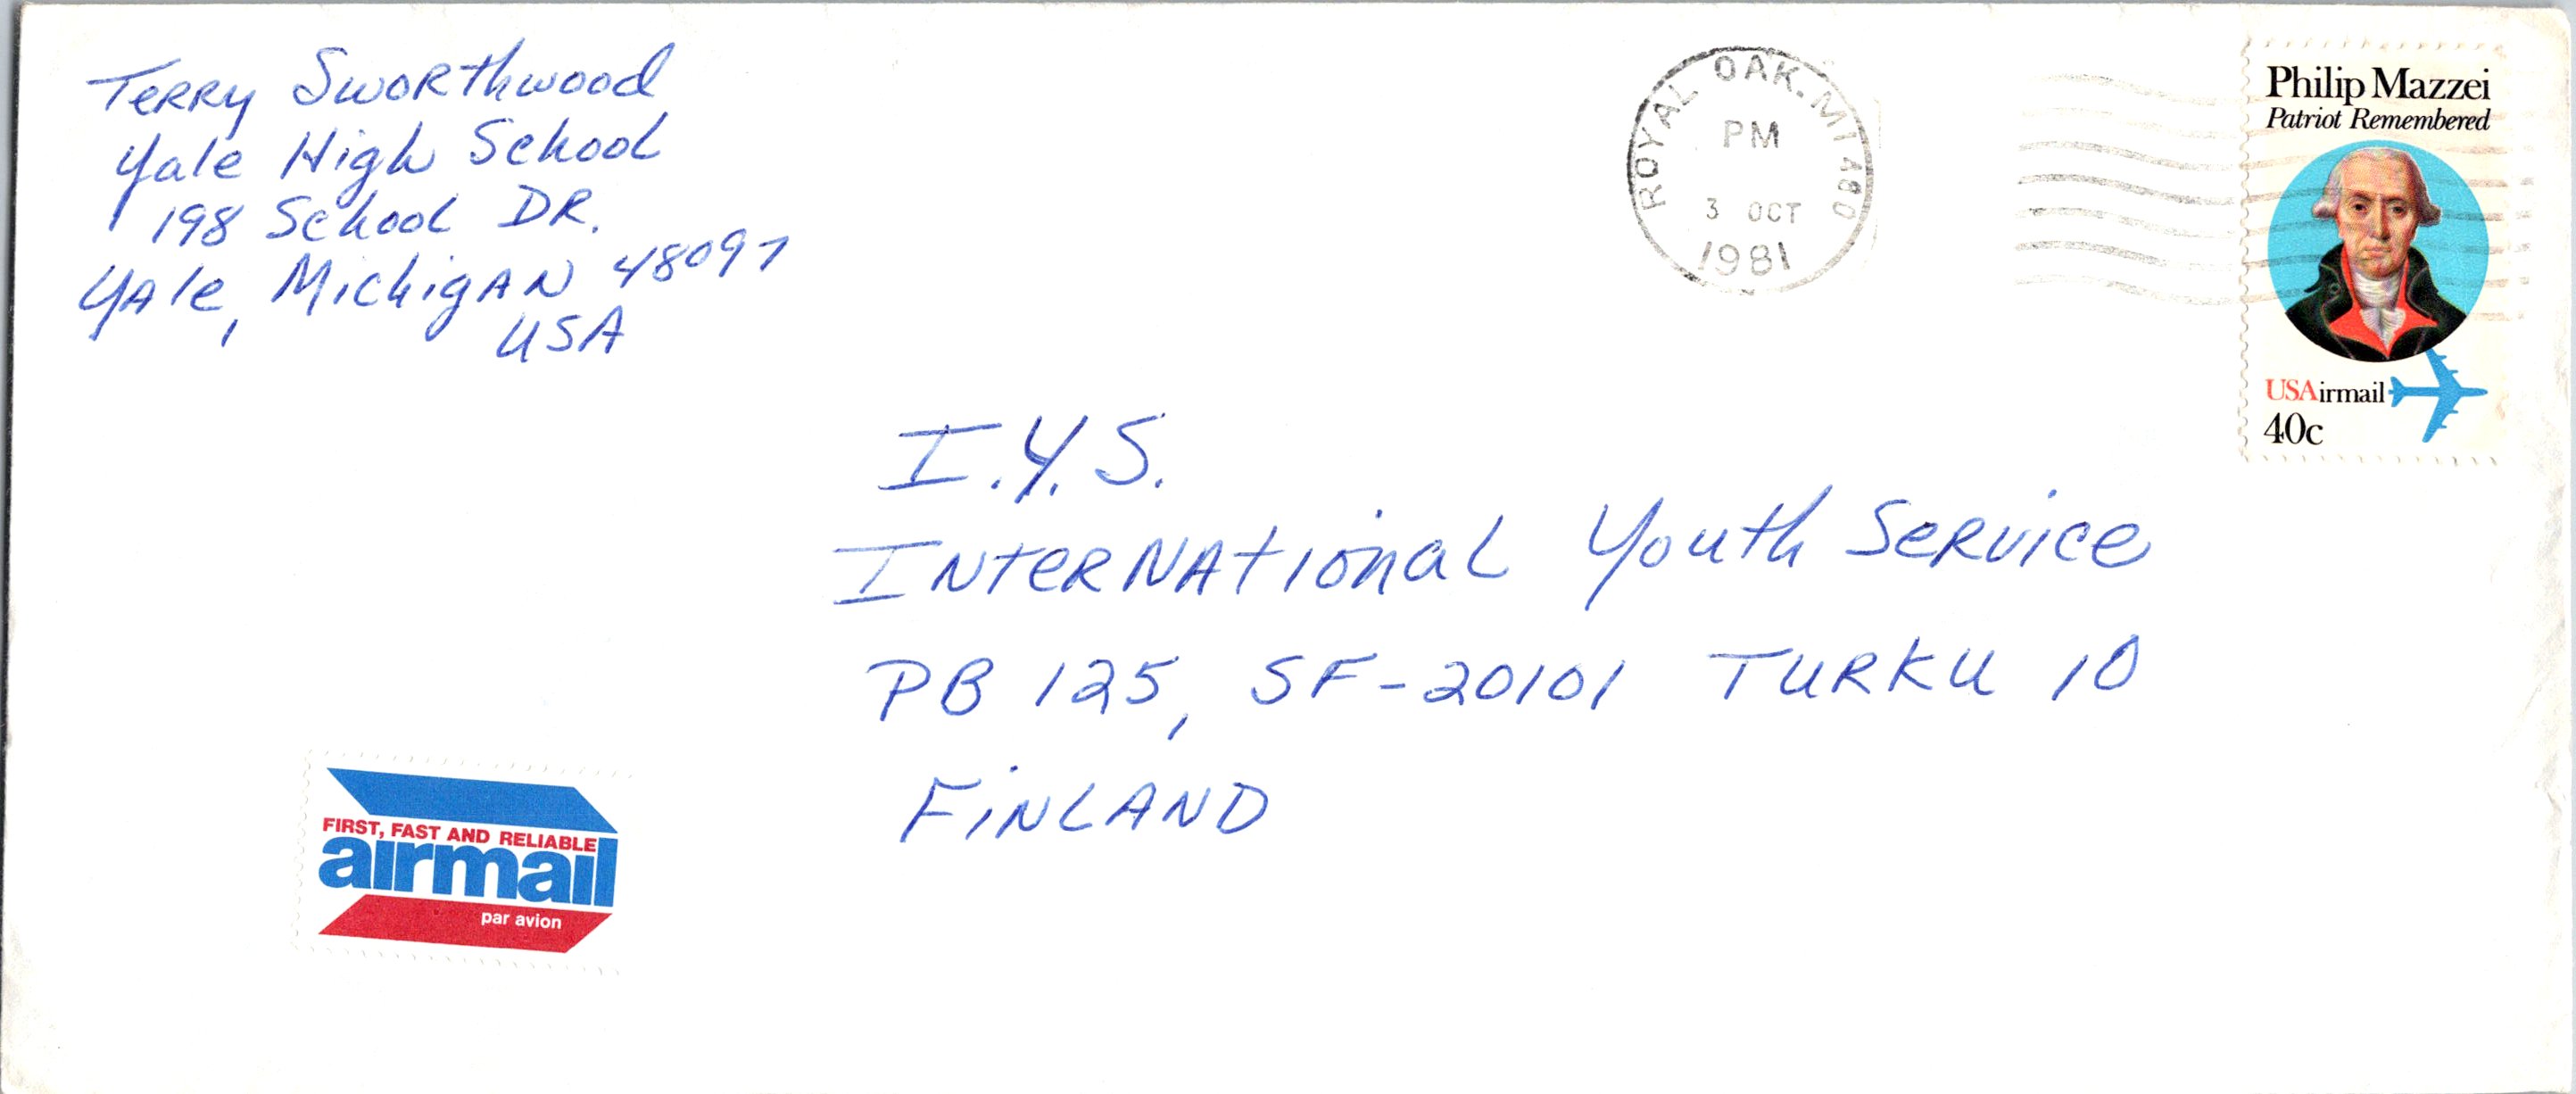 Terry Sworthwood
Yale High School
198 School DR.
Yale, Michigan 48097
USA
ROYAL OAK. MI 480
PM
3 OCT
1981
Philip Mazzei
Patriot Remembered
USAirmail
40c
I.Y.S.
International Youth Service
PB 125, SF-20101 TURKU 10
FINLAND
FIRST, FAST AND RELIABLE
airmail
par avion